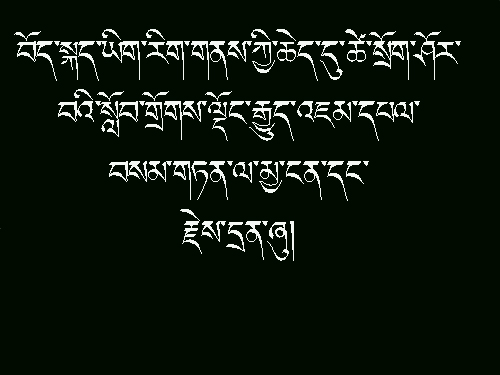 བོད་སྐད་ཡིག་རིག་གནས་ཀྱི་ཆེད་དུ་ཚེ་སྲོག་ཤོར་
བའི་སློབ་གྲོགས་ལྡོང་རྒྱུད་འཇམ་དཔལ་
བསམ་གཏན་ལ་མྱ་ངན་དང་
རྗེས་དྲན་ཞུ།